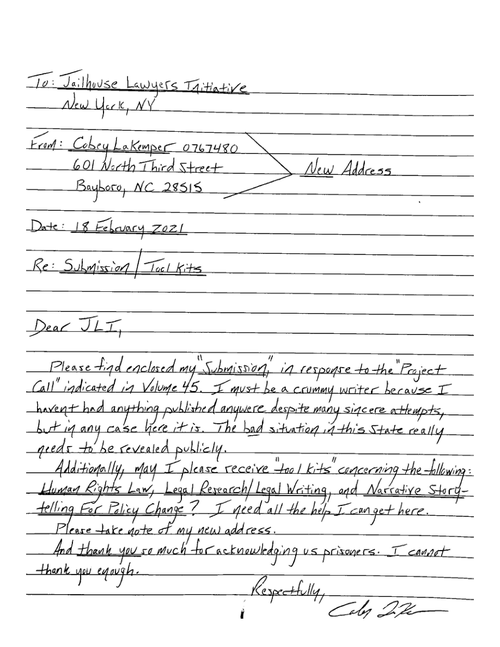 To: Jailhouse Lawyers Initiative
New York, NY
From: Cobey LaKemper 0767480
601 North Third Street
Bayboro, NC 28515
New Address
Date: 18 February 2021
Re: Submission / Tool Kits
Dear JLI,
Please find enclosed my "Submission," in response to the "Project
Call" indicated in Volume 45. I must be a crummy writer because I
havent had anything published anywere despite many sincere attempts,
but in any case here it is. The bad situation in this State really
needs to be revealed publicly.
Additionally, may I please receive "tool kits" concerning the following:
Human Rights Law, Legal Research/Legal Writing, and Narrative Story-
telling For Policy Change? I need all the help I can get here.
Please take note of my new address.
And thank you so much for acknowledging us prisoners. I cannot
thank you enough.
Respectfully,